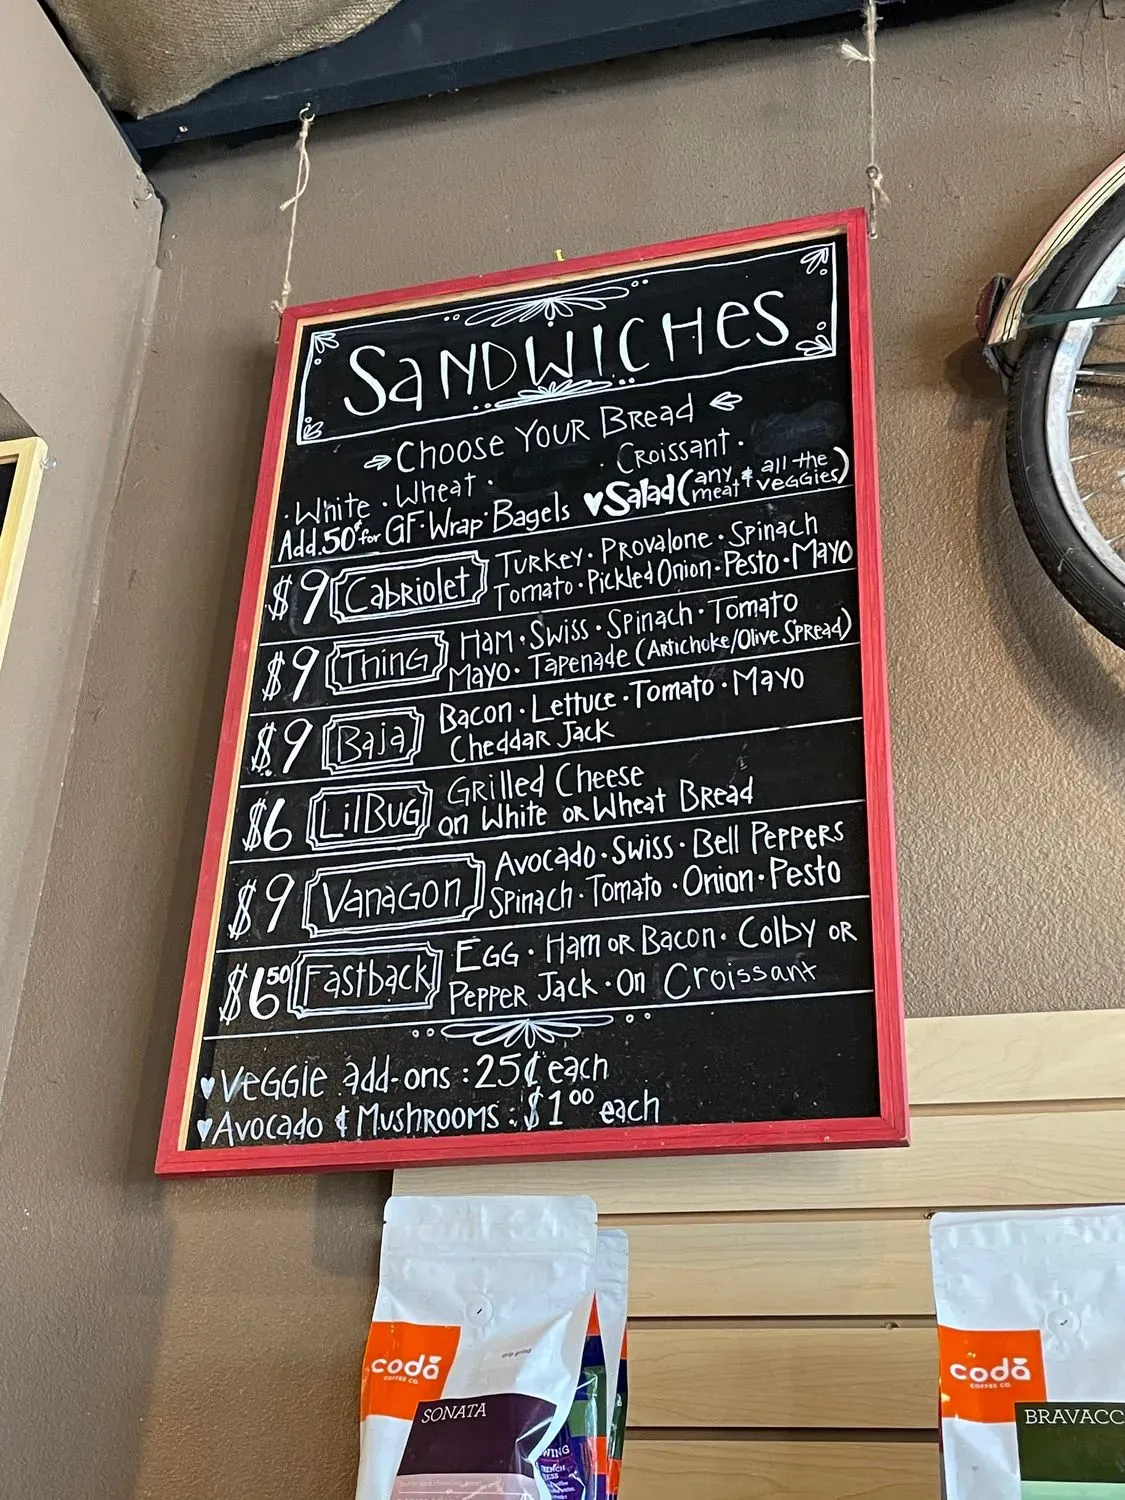 SANDWICHES
Choose Your Bread
· White · Wheat · · Croissant ·
Add .50¢ for GF · Wrap · Bagels ♥ Salad (any meat & all the veggies)
$9 Cabriolet Turkey · Provalone · Spinach
Tomato · Pickled Onion · Pesto · Mayo
$9 Thing Ham · Swiss · Spinach · Tomato
Mayo · Tapenade (Artichoke/Olive Spread)
$9 Baja Bacon · Lettuce · Tomato · Mayo
Cheddar Jack
$6 Lil Bug Grilled Cheese
on White or Wheat Bread
$9 Vanagon Avocado · Swiss · Bell Peppers
Spinach · Tomato · Onion · Pesto
$6.50 Fastback Egg · Ham or Bacon · Colby or
Pepper Jack · On Croissant
♥ Veggie add-ons : 25¢ each
♥ Avocado & Mushrooms : $1.00 each
drip grind
coda
COFFEE CO.
SONATA
WING
coda
COFFEE CO.
BRAVACC